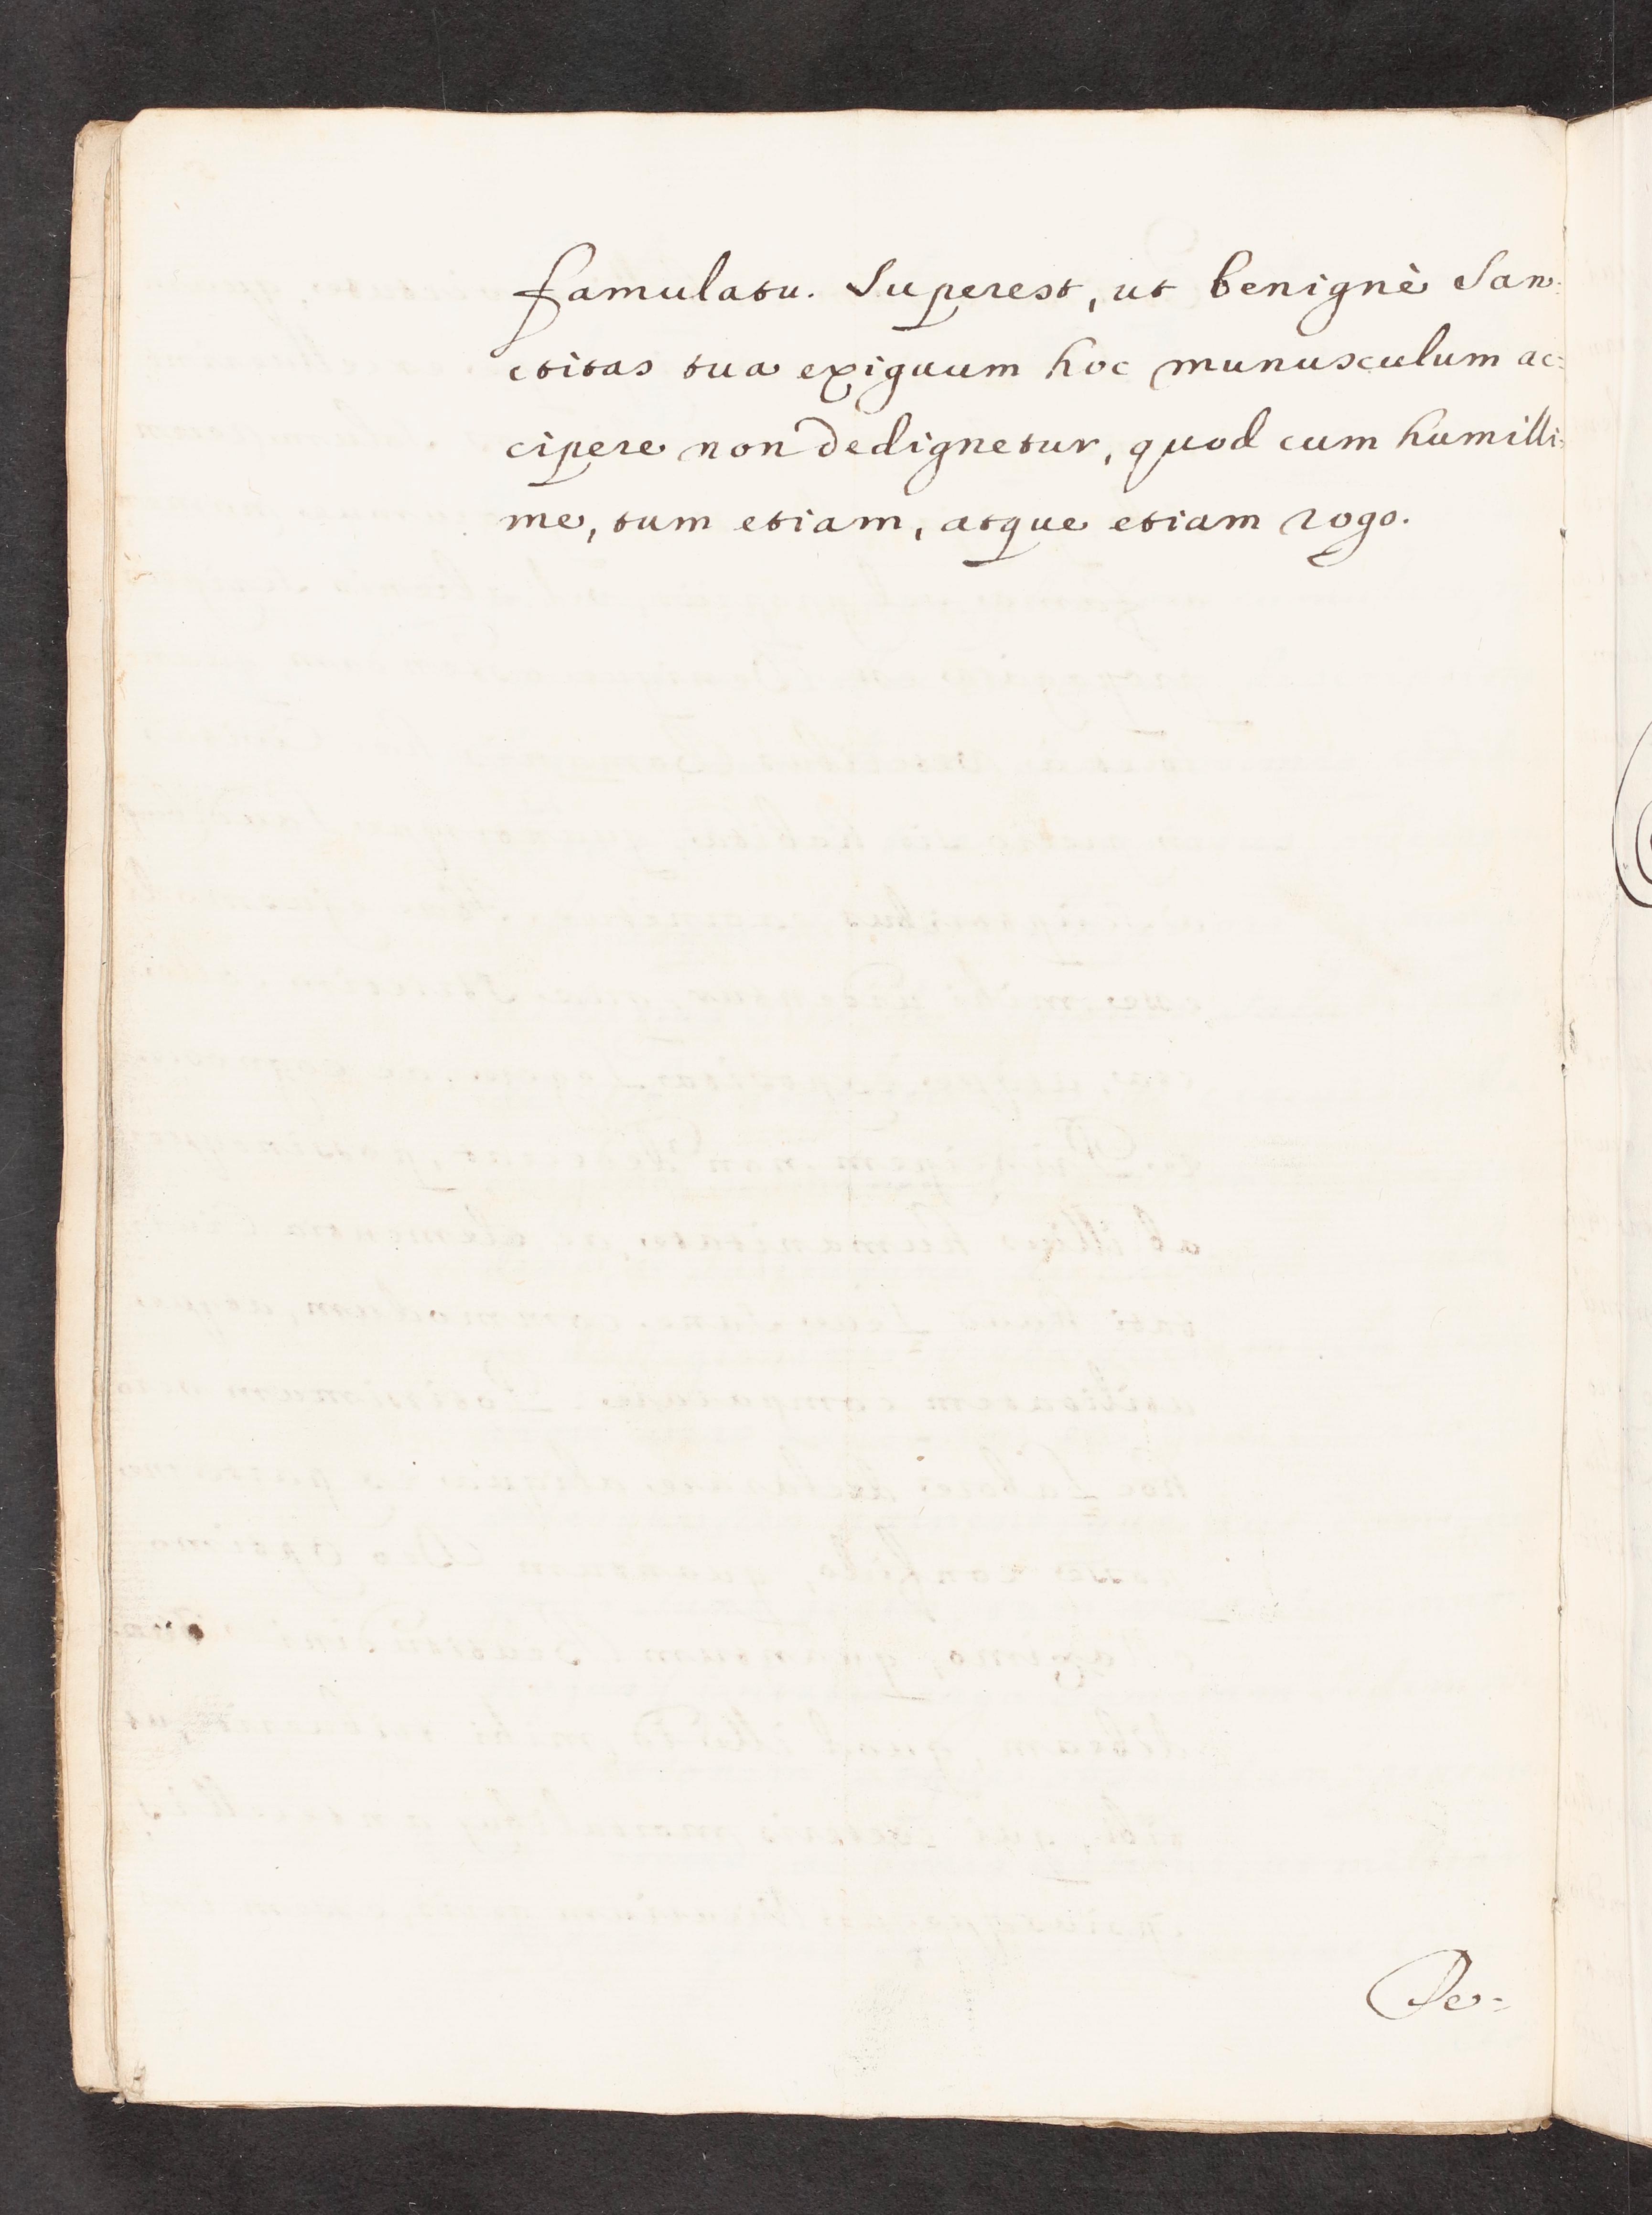 famulatu. Superest, ut benignè San:
ctitas tua exiguum hoc munusculum ac:
cipere non dedignetur, quod cum humilli:
me, tum etiam, atque etiam rogo.
De: